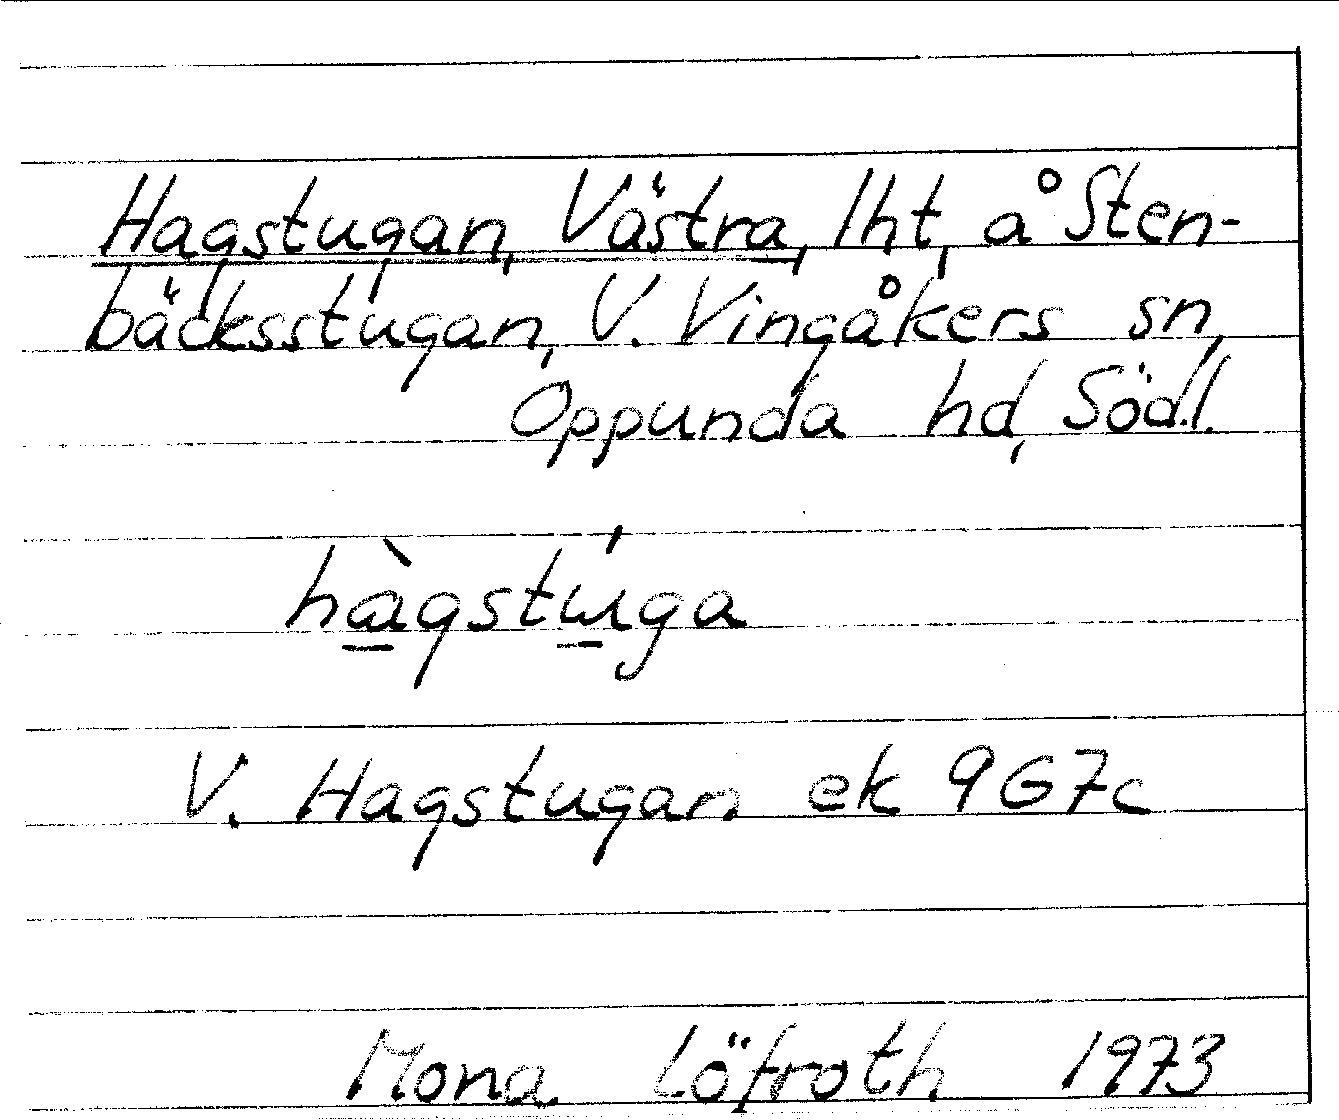 Hagstugan, Västra, lht, å Sten-
bäcksstugan, V. Vingåkers sn,
Oppunda hd, Södl.
hàgstúga
V. Hagstugan ek 9G7c
Mona Löfroth 1973